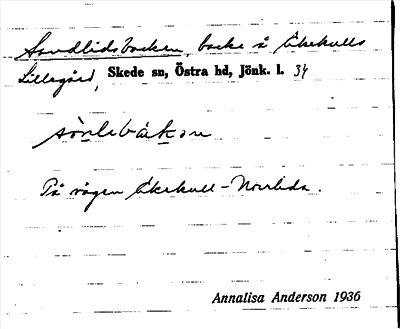 Sandlidsbacken, backe å Ekekulls
Lillegård, Skede sn, Östra hd, Jönk. l. 34
På vägen Ekekull - Norrlida.
Annalisa Anderson 1936